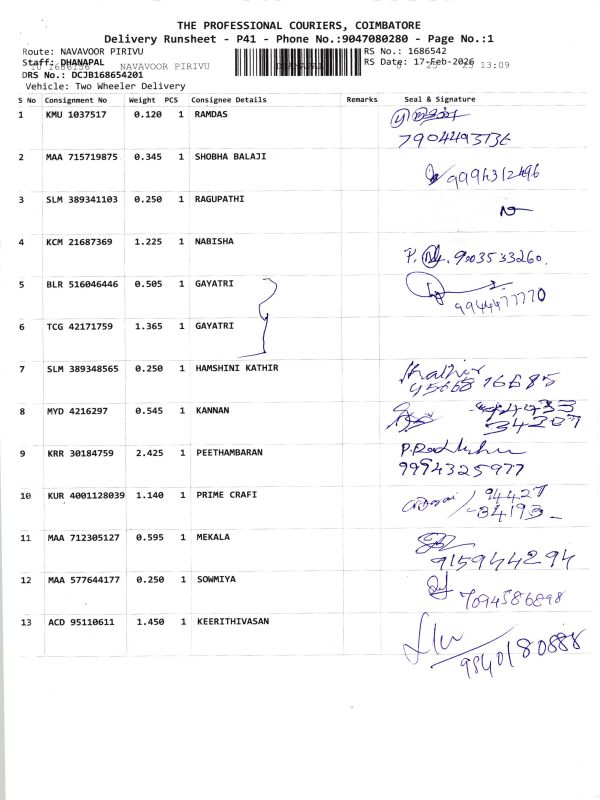 THE PROFESSIONAL COURIERS, COIMBATORE
Delivery Runsheet - P41 - Phone No.:9047080280 - Page No.:1
Route: NAVAVOOR PIRIVU RS No.: 1686542
Staff: DHANAPAL RS Date: 17-Feb-2026 13:09
NAVAVOOR PIRIVU DHANAPAL
DRS No.: DCJB168654201
Vehicle: Two Wheeler Delivery
S No Consignment No Weight PCS Consignee Details Remarks Seal & Signature
1 KMU 1037517 0.120 1 RAMDAS
7904493736
2 MAA 715719875 0.345 1 SHOBHA BALAJI 9994312496
3 SLM 389341103 0.250 1 RAGUPATHI
4 KCM 21687369 1.225 1 NABISHA 9003533260.
5 BLR 516046446 0.505 1 GAYATRI
9944477770
6 TCG 42171759 1.365 1 GAYATRI
7 SLM 389348565 0.250 1 HAMSHINI KATHIR
8 MYD 4216297 0.545 1 KANNAN 94433
34207
9 KRR 30184759 2.425 1 PEETHAMBARAN
9994325977
10 KUR 4001128039 1.140 1 PRIME CRAFI 94427
34193
11 MAA 712305127 0.595 1 MEKALA
915944294
12 MAA 577644177 0.250 1 SOWMIYA
7094586898
13 ACD 95110611 1.450 1 KEERITHIVASAN
9840180888